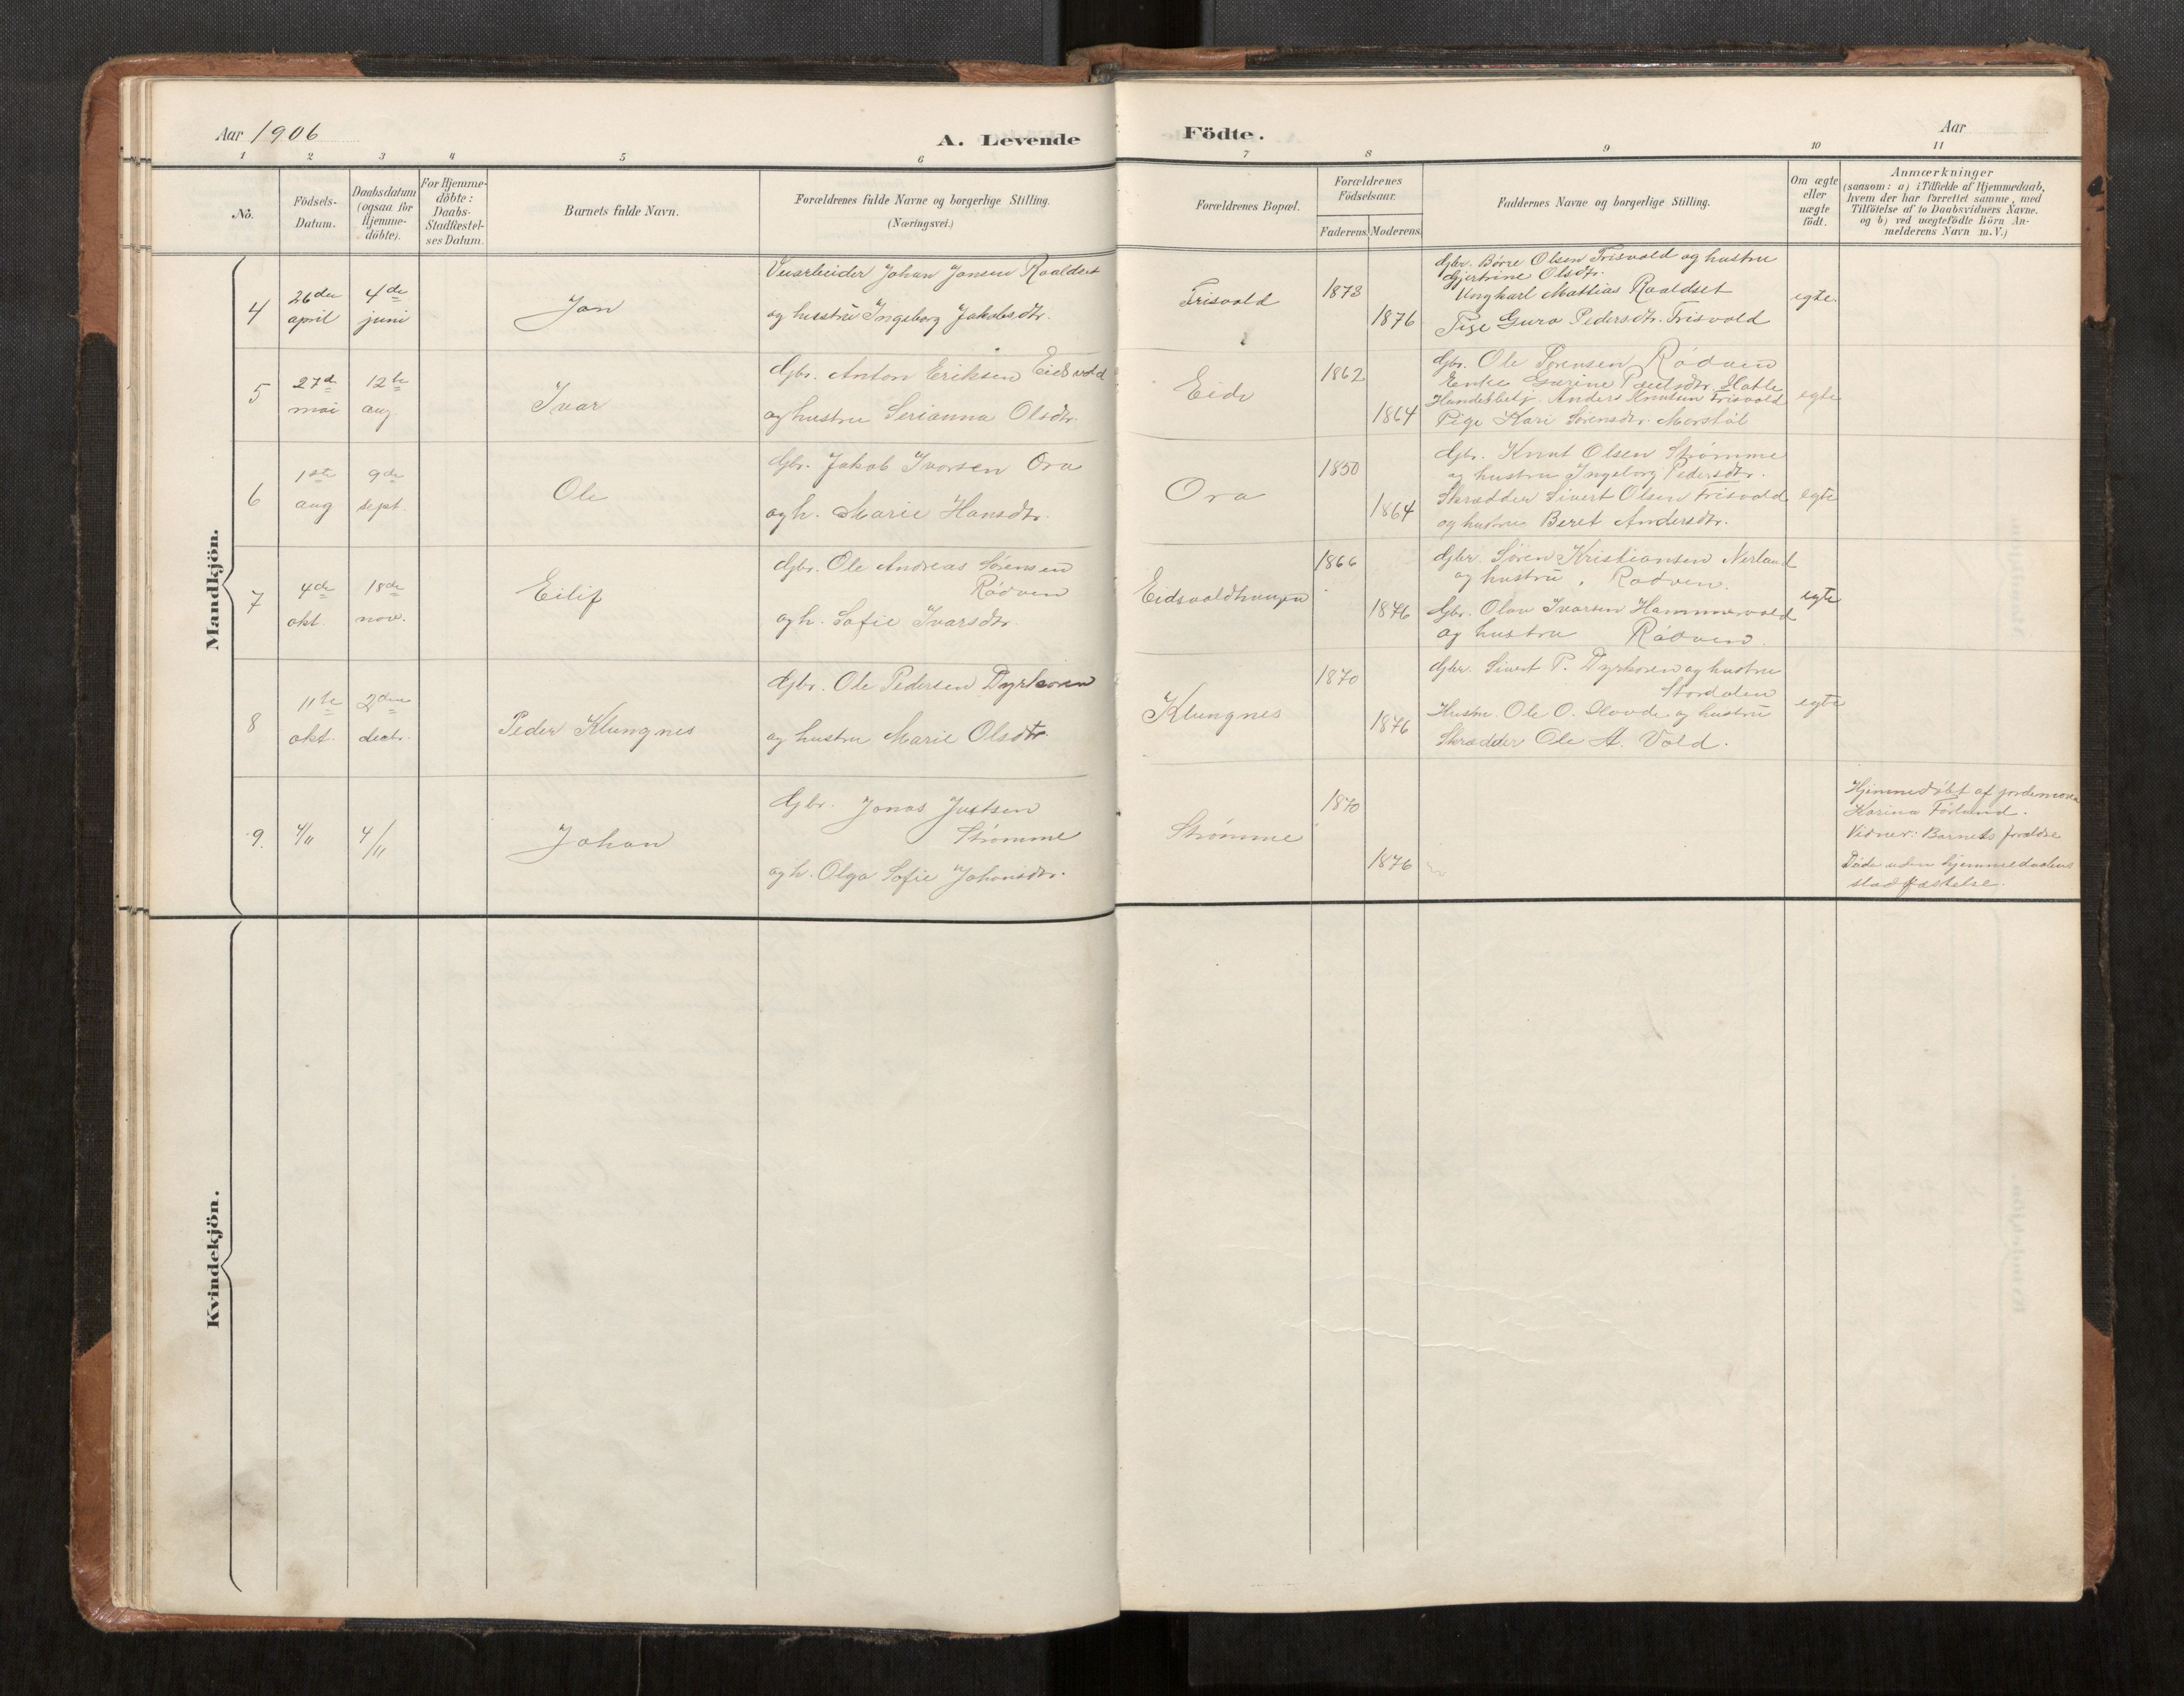 Aar 1906
A. Levende Födte.
Aar
1 2 3 4 5 6 7 8 9 10 11
No.
Födsels-Datum.
Daabsdatum (ogsaa for Hjemme-döbte).
For Hjemme-döbte: Daabs-Stadfæstel-ses Datum.
Barnets fulde Navn.
Forældrenes fulde Navne og borgerlige Stilling.
(Næringsvei.)
Forældrenes Bopæl.
Forældrenes Födselsaar.
Faderens. Moderens.
Faddernes Navne og borgerlige Stilling.
Om ægte eller uægte födt.
Anmærkninger
(saasom: a) i Tilfælde af Hjemmedaab,
hvem der har forrettet samme, med
Tilföielse af to Daabsvidners Navne.
og b) ved uægtefödte Börn An-
melderens Navn m.V.)
Mandkjön.
4 26de april 4de juni Jon
Veiarbeider Johan Jonsen Roaldset
og hustru Ingeborg Jakobsdtr.
Frisvold 1873 1876
Gbr. Børre Olsen Frisvold og hustru
Gjertrine Olsdtr.
Ungkarl Mattias Roaldset
Pige Guro Pedersdtr. Frisvold
egte
5 27d mai 12te aug. Ivar
Gbr. Anton Eriksen Eidsvold
og hustru Serianna Olsdtr.
Eide 1862 1864
Gbr. Ole Sørensen Rødven
Enke Gurine Hatle
Handelsbetj. Anders Knutsen Frisvold
Pige Kari Sørensdtr. Morstøl
egte
6 1ste aug 9de sept. Ole
Gbr. Jakob Ivarsen Ora
og h. Marie Hansdtr.
Ora 1850 1864
Gbr. Knut Olsen Strømme
og hustru Ingeborg Pedersdtr.
Skrædder Sivert Olsen Frisvold
og hustru Beret Andersdtr.
egte
7 4de okt. 18de nov. Eilif
Gbr. Ole Andreas Sørensen
Rødven
og h. Sofie Ivarsdtr.
Eidsvoldhaugen 1866 1876
Gbr. Søren Kristiansen Nerland
og hustru, Rødven.
Gbr. Olav Ivarsen Hammervold
og hustru Rødven.
egte
8 11te okt. 2den decbr. Peder Klungnes
Gbr. Ole Pedersen Dyrkoren
og hustru Marie Olsdtr.
Klungnes 1870 1876
Gbr. Sivert P. Dyrkoren og hustru
Stordalen
Husm. Ole O. og hustru
Skrædder Ole A. Vold.
egte
9. 4/11 4/11 Johan
Gbr. Jonas Justsen
Strømme
og h. Olga Sofie Johansdtr.
Strømme 1870 1876
Hjemmedøbt af jordemora
Karina Førlund.
Vidner: Barnets forældre
Døde uden hjemmedaabens
stadfæstelse.
Kvindekjön.